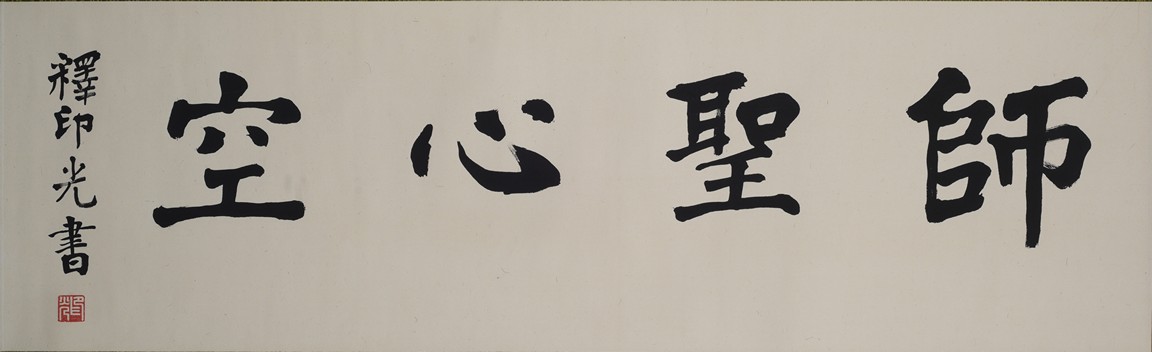 師聖心空
釋印光書
印光